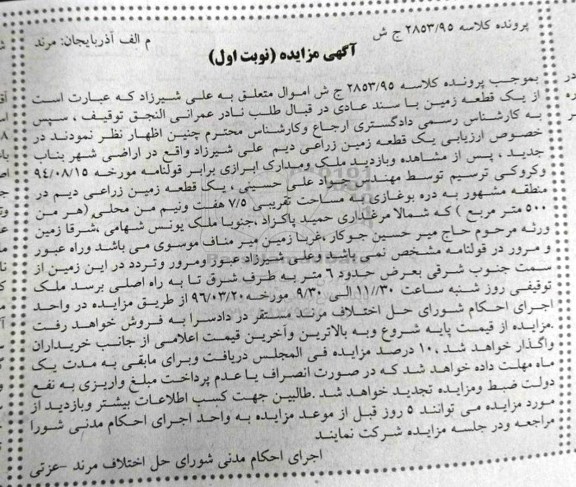 پرونده کلاسه ۲۸۵۳/۹۵ ج ش
م الف آذربایجان: مرند
آگهی مزایده (نوبت اول)
بموجب پرونده کلاسه ۲۸۵۳/۹۵ ج ش اموال متعلق به علی شیرزاد که عبارت است
از یک قطعه زمین با سند عادی در قبال طلب نادر عمرانی النجق توقیف ، سپس
به کارشناس رسمی دادگستری ارجاع وکارشناس محترم چنین اظهار نظر نمودند در
خصوص ارزیابی یک قطعه زمین زراعی دیم علی شیرزاد واقع در اراضی شهر بناب
جدید ، پس از مشاهده وبازدید ملک ومدارک ابرازی برابر قولنامه مورخه ۹۴/۰۸/۱۵
وکروکی ترسیم توسط مهندس مراد علی حسینی ، یک قطعه زمین زراعی دیم در
منطقه مشهور به دره بوغازی به مساحت تقریبی ۷/۵ هفت ونیم من محلی (هر من
۵۰۰ متر مربع ) که شمالا مرغداری حمید پاکزاد ،جنوبا ملک یونس شهامی ،شرقا زمین
ورثه مرحوم حاج میر حسین جوکار ،غربا زمین میر مناف موسوی می باشد وراه عبور
و مرور در قولنامه مشخص نمی باشد وعلی شیرزاد عبور ومرور وتردد در این زمین از
سمت جنوب شرقی بعرض حدود ۶ متر به طرف شرق تا به راه اصلی برسد ملک
توقیفی روز شنبه ساعت ۱۱//۳۰ الی ۹/۳۰ مورخه ۹۶/۰۳/۲۰ از طریق مزایده در واحد
اجرای احکام شورای حل اختلاف مرند مستقر در دادسرا به فروش خواهد رفت
.مزایده از قیمت پایه شروع وبه بالاترین وآخرین قیمت اعلامی از جانب خریداران
واگذار خواهد شد ،۱۰ درصد مزایده فی المجلس دریافت وبرای مابقی به مدت یک
ماه مهلت داده خواهد شد که در صورت انصراف یا عدم پرداخت مبلغ واریزی به نفع
دولت ضبط ومزایده تجدید خواهد شد .طالبین جهت کسب اطلاعات بیشتر وبازدید از
مورد مزایده می توانند ۵ روز قبل از موعد مزایده به واحد اجرای احکام مدنی شورا
مراجعه ودر جلسه مزایده شرکت نمایند
اجرای احکام مدنی شورای حل اختلاف مرند -عزتی